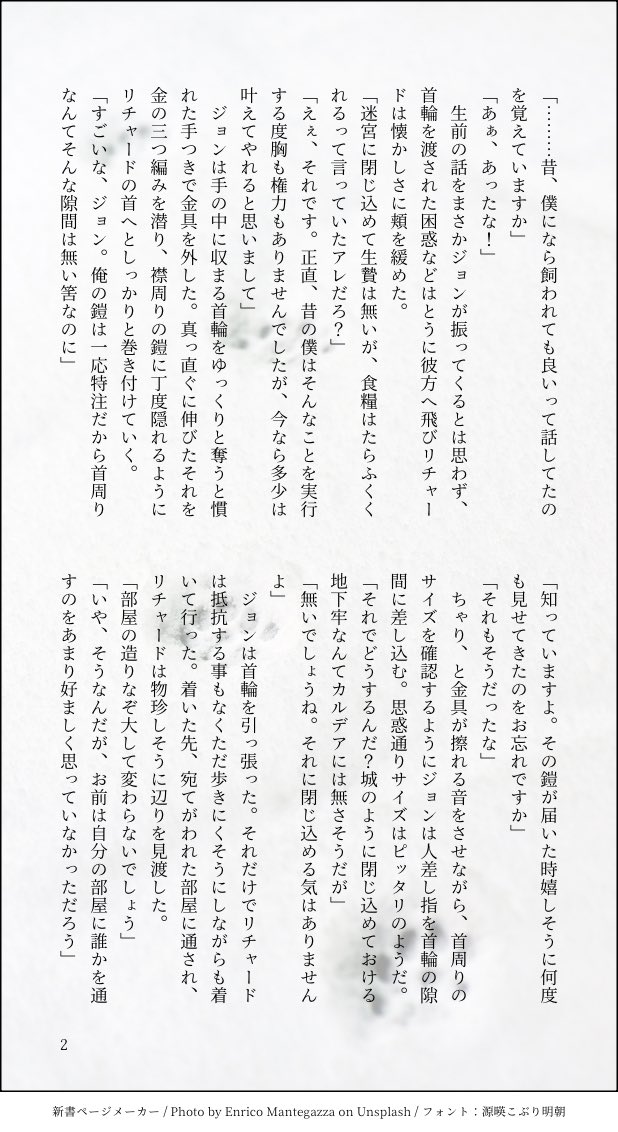 「………昔、僕になら飼われても良いって話してたの
を覚えていますか」
「あぁ、あったな！」
　生前の話をまさかジョンが振ってくるとは思わず、
首輪を渡された困惑などはとうに彼方へ飛びリチャー
ドは懐かしさに頬を緩めた。
「迷宮に閉じ込めて生贄は無いが、食糧はたらふくく
れるって言っていたアレだろ？」
「えぇ、それです。正直、昔の僕はそんなことを実行
する度胸も権力もありませんでしたが、今なら多少は
叶えてやれると思いまして」
　ジョンは手の中に収まる首輪をゆっくりと奪うと慣
れた手つきで金具を外した。真っ直ぐに伸びたそれを
金の三つ編みを潜り、襟周りの鎧に丁度隠れるように
リチャードの首へとしっかりと巻き付けていく。
「すごいな、ジョン。俺の鎧は一応特注だから首周り
なんてそんな隙間は無い筈なのに」
「知っていますよ。その鎧が届いた時嬉しそうに何度
も見せてきたのをお忘れですか」
「それもそうだったな」
　ちゃり、と金具が擦れる音をさせながら、首周りの
サイズを確認するようにジョンは人差し指を首輪の隙
間に差し込む。思惑通りサイズはピッタリのようだ。
「それでどうするんだ？城のように閉じ込めておける
地下牢なんてカルデアには無さそうだが」
「無いでしょうね。それに閉じ込める気はありません
よ」
　ジョンは首輪を引っ張った。それだけでリチャード
は抵抗する事もなくただ歩きにくそうにしながらも着
いて行った。着いた先、宛てがわれた部屋に通され、
リチャードは物珍しそうに辺りを見渡した。
「部屋の造りなぞ大して変わらないでしょう」
「いや、そうなんだが、お前は自分の部屋に誰かを通
すのをあまり好ましく思っていなかっただろう」
2
新書ページメーカー / Photo by Enrico Mantegazza on Unsplash / フォント：源暎こぶり明朝